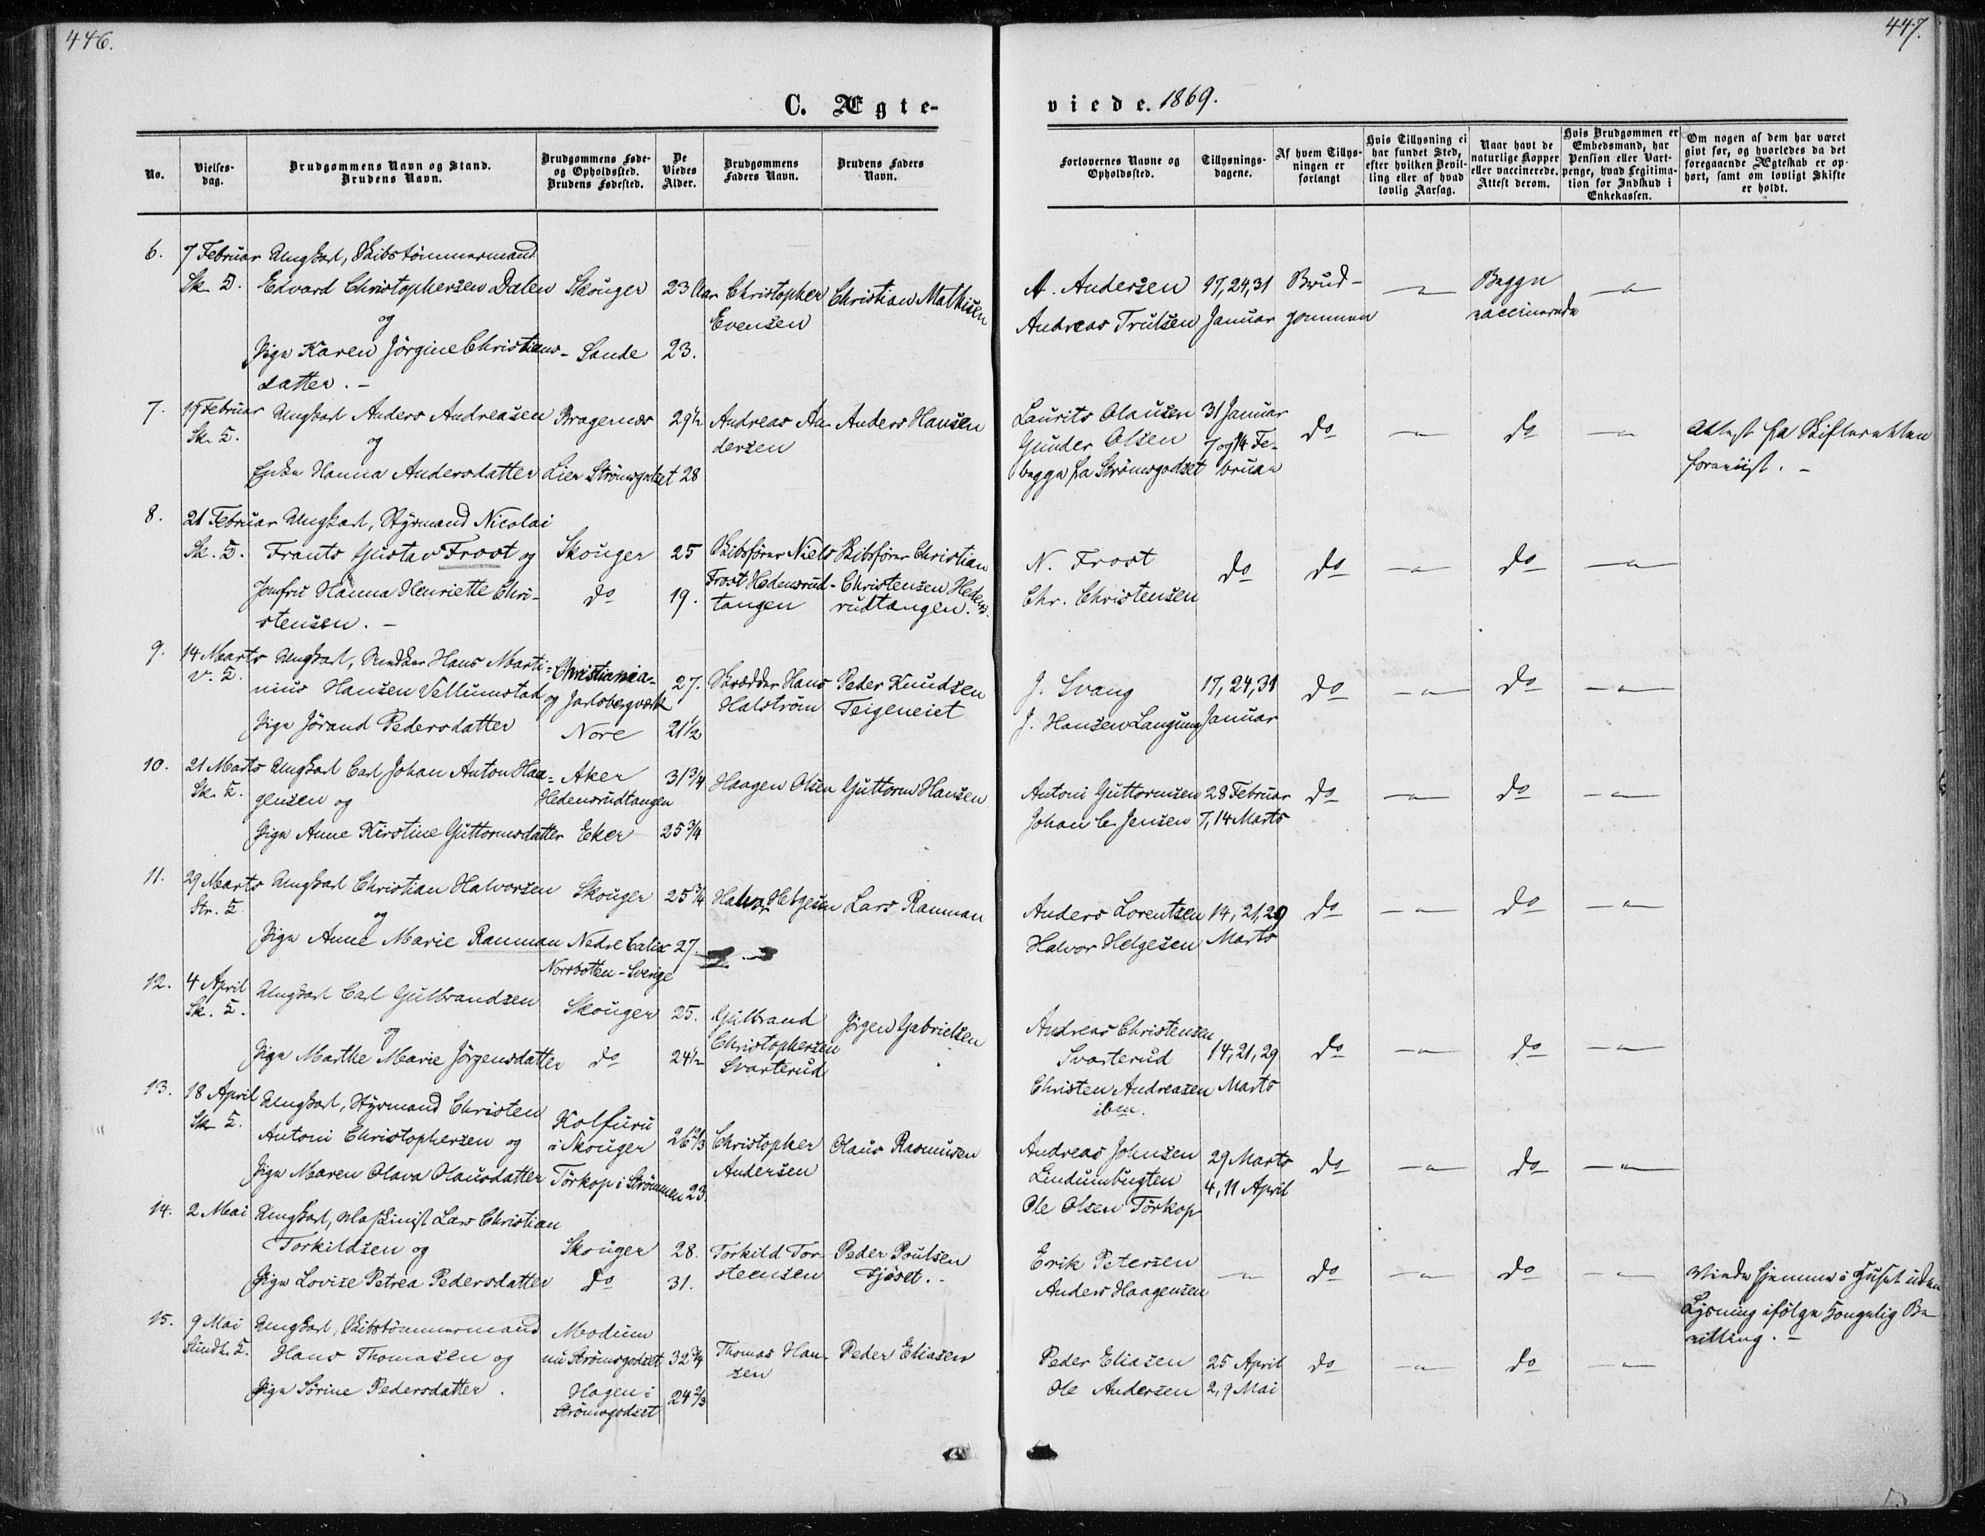 446.
C. Ægte-
No.
Vielses-
dag.
Brudgommens Navn og Stand.
Brudens Navn.
Brudgommens Føde-
og Opholdssted.
Brudens Fødested.
De
Viedes
Alder.
Brudgommens
Faders Navn.
Brudens Faders
Navn.
6. 7 Februar Ungkarl, Skibstømmermand
Sk. K. Edvard Christophersen Dalen Skouger 23 Aar Christopher Christian Mathisen
og Evensen
Pige Karen Jörgine Christians- Sande 23.
datter. -
7. 19 Februar Ungkarl Anders Andreasen Bragernæs 29½ Andreas An- Anders Hansen
Sk. K. og dersen
Enke Hanna Andersdatter Lier Strömsgodset 28
8. 21 Februar Ungkarl, Styrmand Nicolai
Sk. K. Frants Gustav Frost og Skouger 25 Skibsfører Niels Skibsfører Christian
Frost Hedensrud- Christensen Hedens-
Jomfru Hanna Henriette Chri- do 19. tangen rudtangen.
stensen. -
9. 14 Marts Ungkarl, Snedker Hans Marti- Christiania-
V. K. nius Hansen Vellumstad og Jarlsbergværk 27. Skrædder Hans Peder Knudsen
Halström Teigeneiet
Pige Jörand Pedersdatter Nore 21½
10. 21 Marts Ungkarl Carl Johan Anton Haa- Aker 31¾ Haagen Olsen Guttorm Hansen
Sk. K. gensen og Hedensrudtangen
Pige Anne Kirstine Guttormsdatter Eker 25¾
11. 29 Marts Ungkarl Christian Halvorsen Skouger 25¾ Halvor Helgesen Lars Ranman
Str. K. og
Pige Anne Marie Ranman Nedre Calix 27.
Norrbotten - Sverige
12. 4 April Ungkarl Carl Gulbrandsen Skouger 25. Gulbrand Jörgen Gabrielsen
Sk. K. og Christophersen
Pige Marthe Marie Jörgensdatter do 24½ Svarterud
13. 18 April Ungkarl, Styrmand Christen Kolfuru
Sk. K. Antoni Christophersen og i Skouger 26⅔ Christopher Olaus Rasmusen
Pige Maren Olava Olausdatter Törkop i Strömmen 23 Andersen
14. 2 Mai Ungkarl, Maskinist Lars Christian
Torkildsen og Skouger 28. Torkild Tor- Peder Poulsen
Pige Lovise Petrea Pedersdatter do 31. steensen
15. 9 Mai Ungkarl, Skibstømmermand Modum
Hans Thomasen og nu Strömsgodset 32¾ Thomas Han- Peder Eliasen
sen
Pige Sörine Pedersdatter. Hagen i 24⅔
Strömsgodset
447.
viede. 1869.
Forlovernes Navne og
Opholdssted.
Tillysnings-
dagene.
Af hvem Tillys-
ningen er
forlangt
Hvis Tillysning ei
har fundet Sted,
efter hvilken Bevil-
ling eller af hvad
lovlig Aarsag.
Naar havt de
naturlige Kopper
eller vaccinerede.
Attest derom.
Hvis Brudgommen er
Embedsmand, har
Pension eller Vart-
penge, hvad Legitima-
tion for Indskud i
Enkekassen.
Om nogen af dem har været
givt før, og hvorledes da det
foregaaende Ægteskab er op-
hørt, samt om lovligt Skifte
er holdt.
A. Andersen 17, 24, 31 Brud- Begge
Andreas Trulsen Januar gommen vaccinerede
Laurits Olausen 31 Januar
Gunder Olsen 7 og 14 Fe- do do Attest fra Skifteretten
begge fra Strömsgodset bruar forevist. -
N. Frost do do do
Chr. Christensen
J. Svang 17, 24, 31 do do
J. Hansen Langum Januar
Antoni Guttormsen 28 Februar do do
Johan C. Jensen 7, 14 Marts
Anders Lorentsen 14, 21, 29 do do
Halvor Helgesen Marts
Andreas Christensen
Svarterud 14, 21, 29 do do
Christen Andreasen Marts
ibm.
Andreas Johnsen 29 Marts do do
Lindumbugten 4, 11 April
Ole Olsen Törkop
Erik Petersen
Anders Haagensen do do Viede hjemme i Huset uden
Lysning ifølge Kongelig Be-
villing. -
Peder Eliasen 25 April do do
Ole Andersen 2, 9 Mai